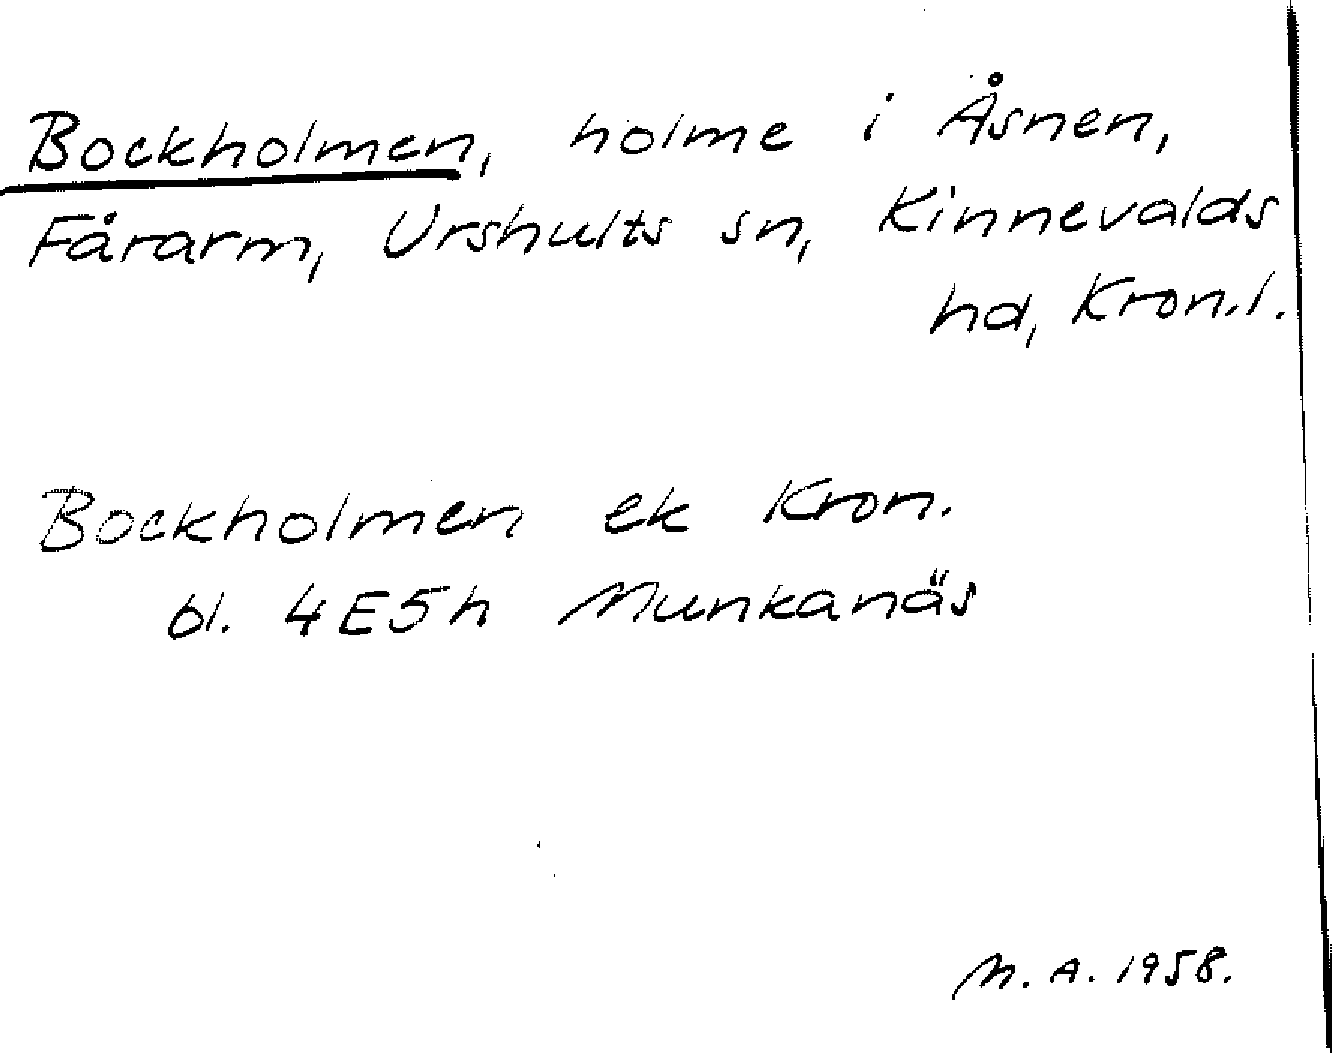 Bockholmen, holme i Åsnen,
Fårarm, Urshults sn, Kinnevalds
hd, Kron.l.
Bockholmen ek Kron.
bl. 4E5h Munkanäs
M.A. 1958.